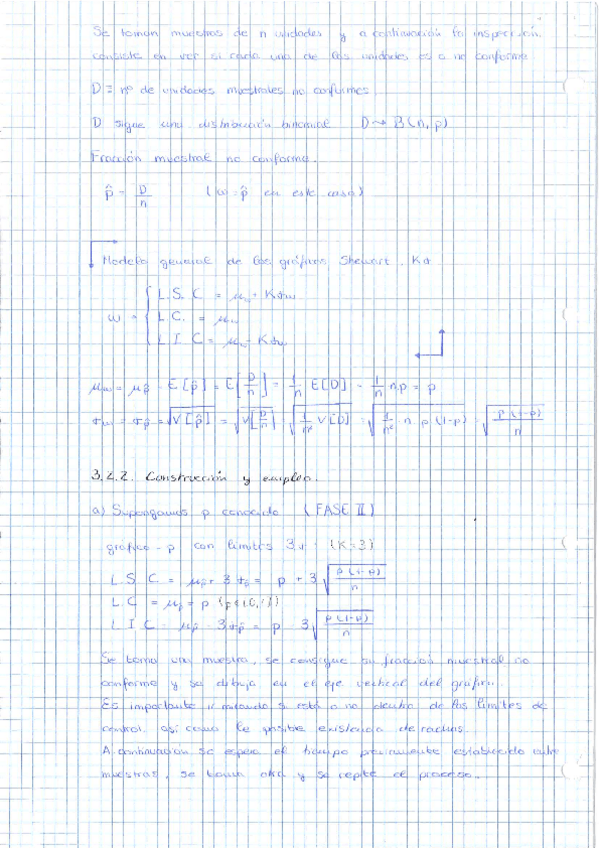 Se toman muestras de n unidades y a continuación la inspección
consiste en ver si cada una de las unidades es o no conforme
D = nº de unidades muestrales no conformes.
D sigue una distribución binomial D ~> B(n, p)
Fracción muestral no conforme.
p̂ = D/n (ω = p̂ en este caso)
Modelo general de los gráficos Shewart. Kσ
ω = { L.S.C = μω + Kσω
L.C. = μω
L.I.C = μω - Kσω
μω = μp̂ = E[p̂] = E[D/n] = 1/n E[D] = 1/n n.p = p
σω = σp̂ = √V[p̂] = √V[D/n] = √(1/n² V[D]) = √(1/n² · n p (1-p)) = √(p(1-p)/n)
3.2.2. Construcción y empleo.
a) Supongamos p conocido (FASE II)
gráfico-p con límites 3σ (K=3)
L.S.C = μp̂ + 3σp̂ = p + 3√(p(1-p)/n)
L.C = μp̂ = p (p∈(0,1))
L.I.C = μp̂ - 3σp̂ = p - 3√(p(1-p)/n)
Se toma una muestra, se consigue su fracción muestral no
conforme y se dibuja en el eje vertical del gráfico.
Es importante ir mirando si está o no dentro de los límites de
control, así como la posible existencia de rachas.
A continuación se espera el tiempo previamente establecido entre
muestras, se toma otra y se repite el proceso.